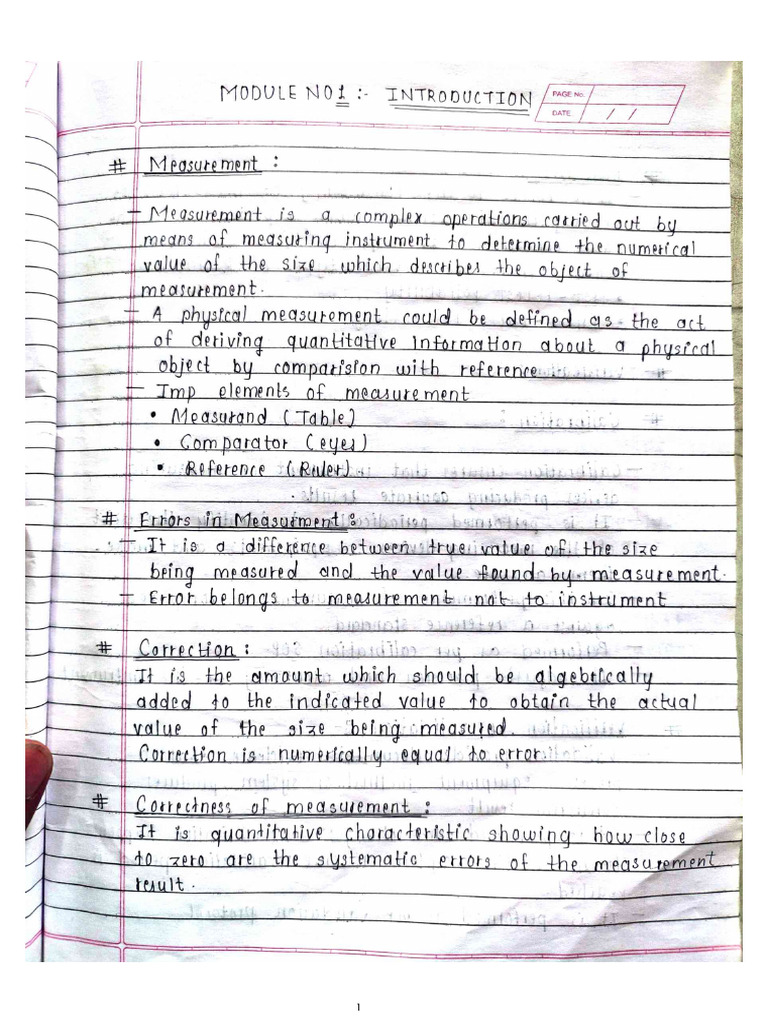 MODULE NO 1 :- INTRODUCTION
PAGE No.
DATE / /
# Measurement :
- Measurement is a complex operations carried out by
means of measuring instrument to determine the numerical
value of the size which describes the object of
measurement.
- A physical measurement could be defined as the act
of deriving quantitative information about a physical
object by comparision with reference
- Imp elements of measurement
• Measurand (Table)
• Comparator (eyes)
• Reference (Ruler)
# Errors in Measurment :
- It is a difference between true value of the size
being measured and the value found by measurement.
- Error belongs to measurement not to instrument
# Correction :
It is the amount which should be algebrically
added to the indicated value to obtain the actual
value of the size being measured.
Correction is numerically equal to error
# Correctness of measurement :
It is quantitative characteristic showing how close
to zero are the systematic errors of the measurement
result.
1